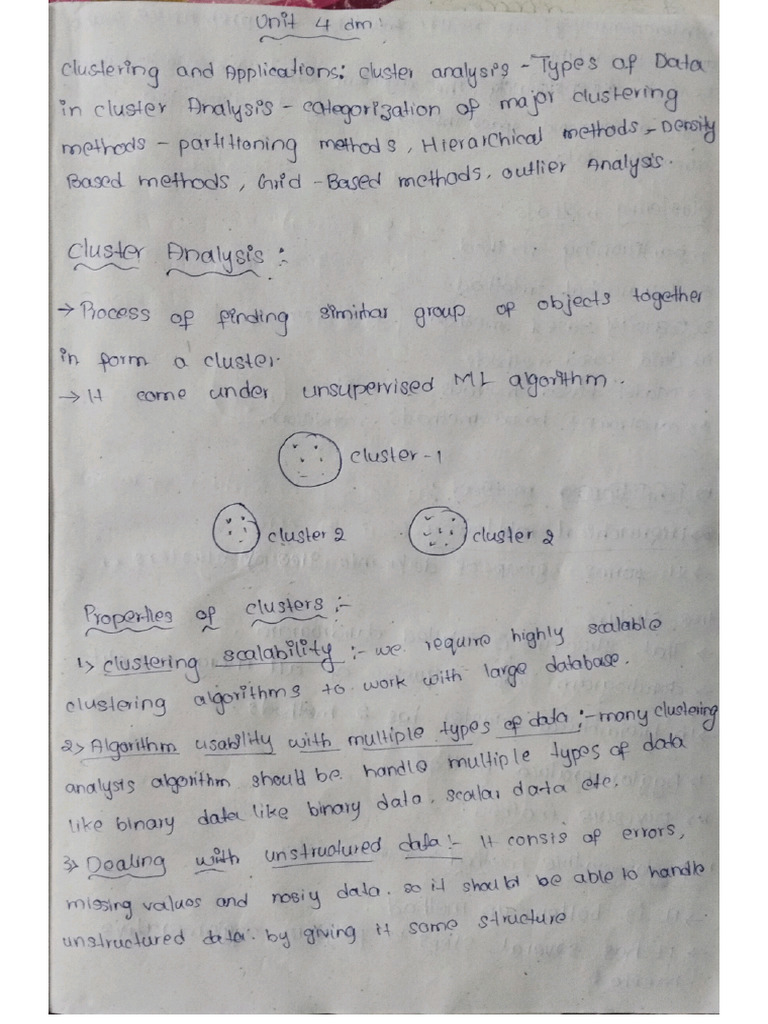 Unit 4 dm:
Clustering and Applications: Cluster analysis - Types of Data
in cluster Analysis - categorization of major clustering
methods - partitioning methods, Hierarchical methods, - Density
Based methods, Grid - Based methods, outlier Analysis.
Cluster Analysis :-
→ Process of finding similar group of objects together
in form a cluster.
→ It come under unsupervised ML algorithm.
cluster - 1
cluster 2 cluster 2
Properties of clusters :-
1> clustering scalability :- we require highly scalable
clustering algorithms to work with large database.
2> Algorithm usability with multiple types of data :- many clustering
analysis algorithm should be handle multiple types of data
like binary data like binary data, scalar data etc.
3> Dealing with unstructured data :- It consis of errors,
missing values and nosiy data. so it should be able to handle
unstructured data. by giving it some structure